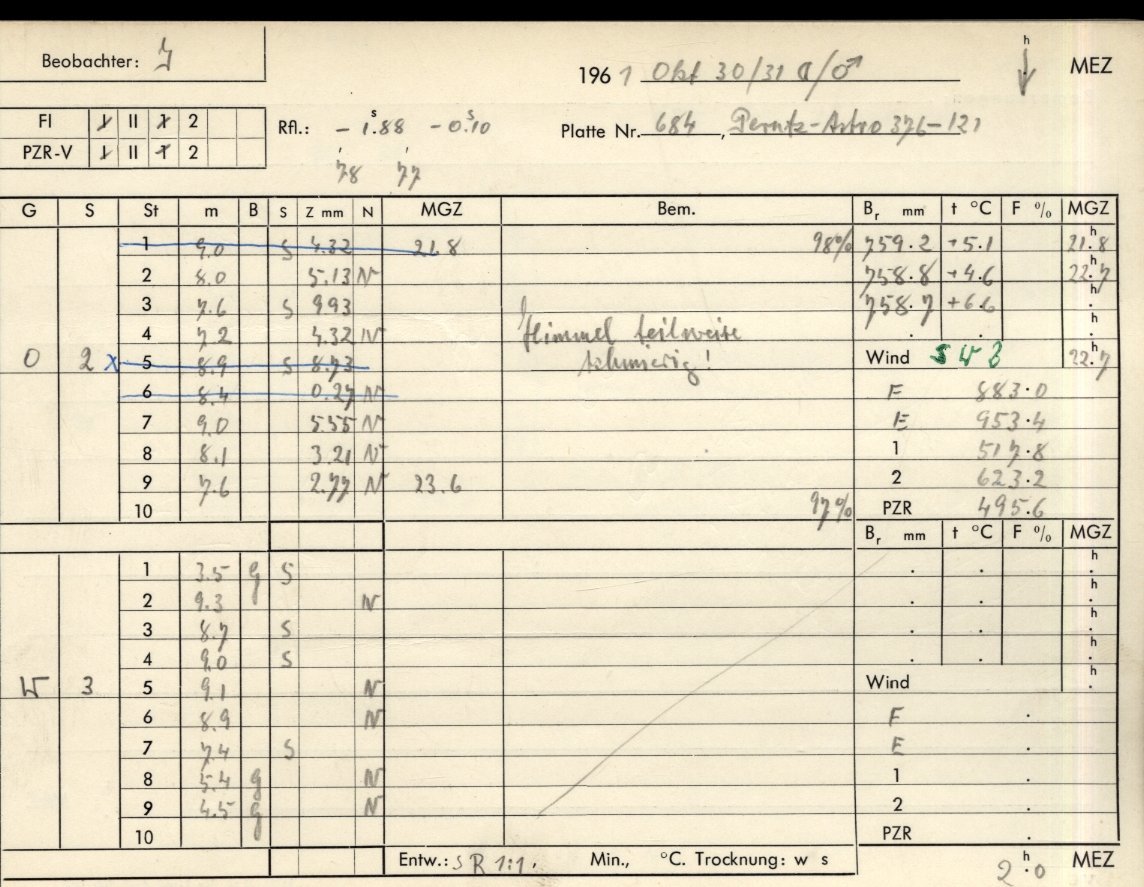 Beobachter:
1961 Okt 30/31 ☾/♂
h MEZ
FI II 2
PZR-V II 2
Rfl.: - 1.88 - 0.10
78 77
Platte Nr. 684, Perutz-Astro 376-121
G S St m B S Z mm N MGZ Bem. Br mm t °C F % MGZ
1 9.0 S 4.32 21.8 98% 759.2 +5.1 21.8
2 8.0 5.13 N 758.8 +4.6 22.7
3 7.6 S 9.93 758.7 +6.6
4 7.2 4.32 N Himmel teilweise
O 2 x 5 8.9 S 8.73 schmierig! Wind SW 3 22.7
6 8.4 0.27 N F 883.0
7 9.0 5.55 N E 953.4
8 8.1 3.21 N 1 517.8
9 7.6 2.77 N 23.6 2 623.2
10 97% PZR 495.6
Br mm t °C F % MGZ
1 3.5 g S h
2 9.3 N h
3 8.7 S h
4 9.0 S h
W 3 5 9.1 N Wind h
6 8.9 N F
7 7.4 S E
8 5.4 g N 1
9 4.5 g N 2
10 PZR
Entw.: SR 1:1, Min., °C. Trocknung: w s
2.0 h MEZ